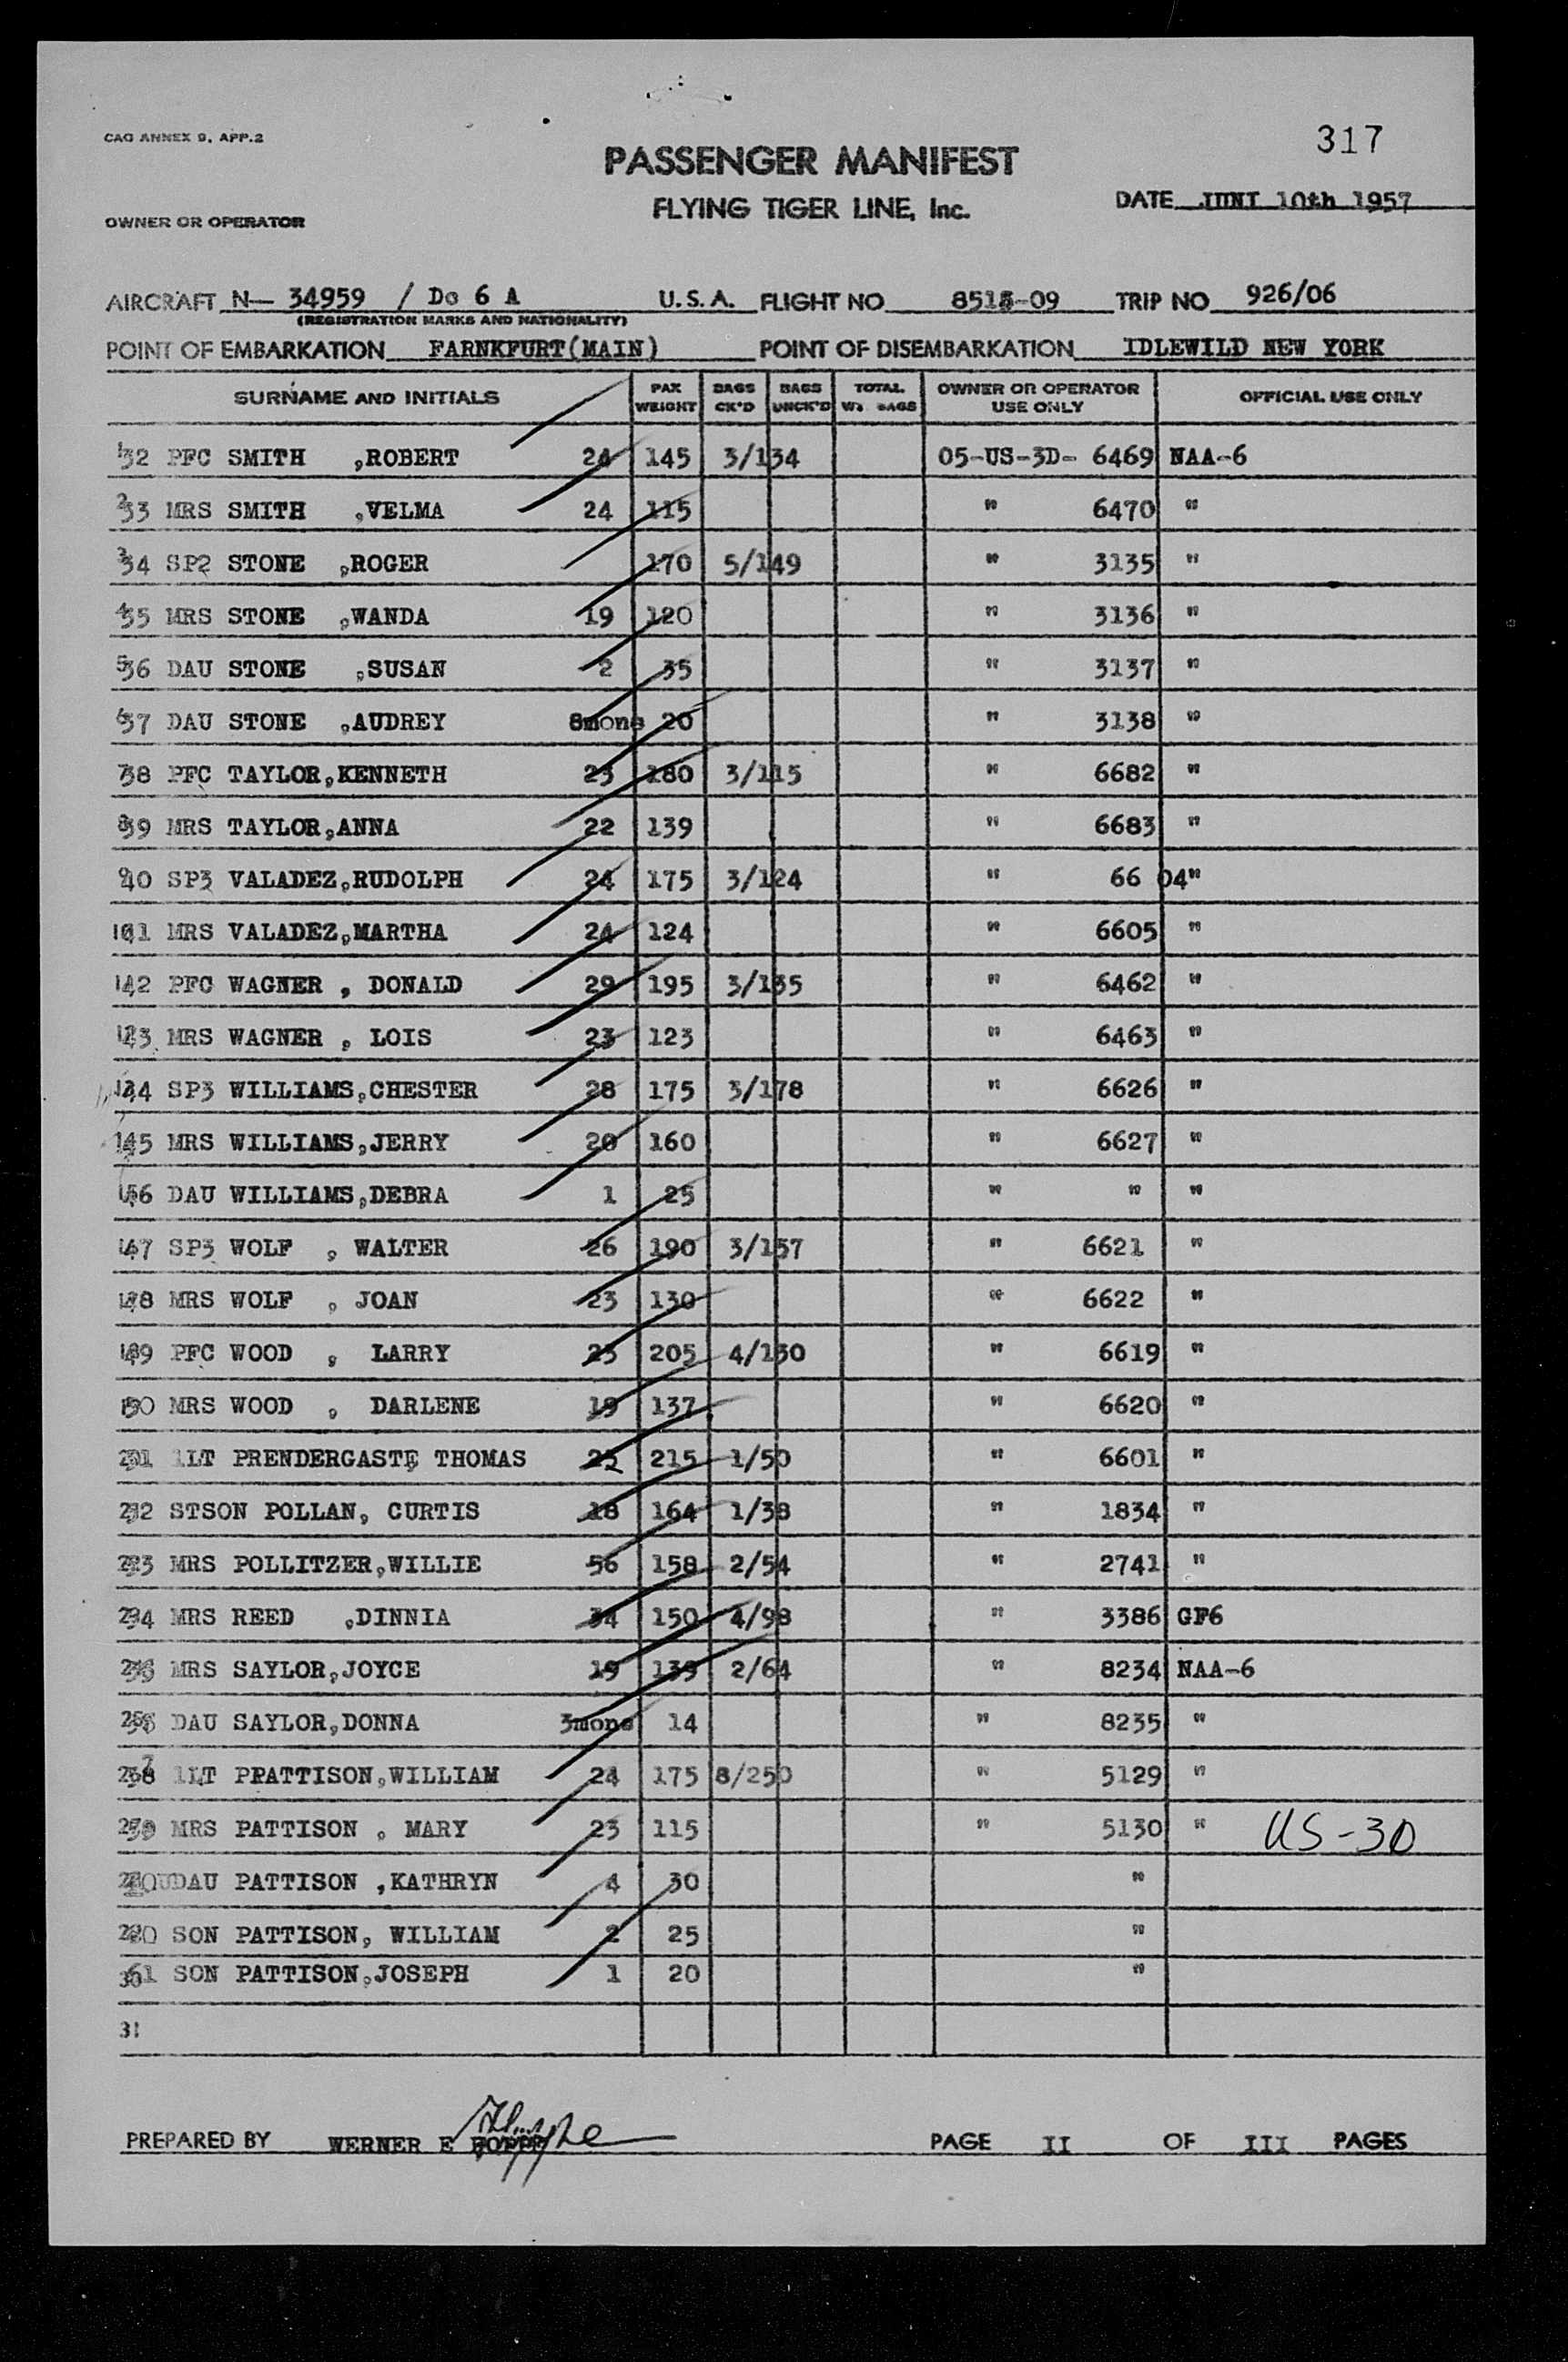 CAO ANNEX 9, APP.2
317
PASSENGER MANIFEST
FLYING TIGER LINE, Inc.
DATE JUNI 10th 1957
OWNER OR OPERATOR
AIRCRAFT N— 34959 / Dc 6 A U.S.A. FLIGHT NO 8515-09 TRIP NO 926/06
(REGISTRATION MARKS AND NATIONALITY)
POINT OF EMBARKATION FARNKFURT(MAIN) POINT OF DISEMBARKATION IDLEWILD NEW YORK
SURNAME AND INITIALS PAX WEIGHT BAGS CK'D BAGS UNCK'D TOTAL WT. BAGS OWNER OR OPERATOR USE ONLY OFFICIAL USE ONLY
32 PFC SMITH ,ROBERT 24 145 3/134 05-US-3D- 6469 NAA-6
33 MRS SMITH ,VELMA 24 115 " 6470 "
34 SP2 STONE ,ROGER 170 5/149 " 3135 "
35 MRS STONE ,WANDA 19 120 " 3136 "
36 DAU STONE ,SUSAN 2 35 " 3137 "
37 DAU STONE ,AUDREY 8mons 20 " 3138 "
38 PFC TAYLOR,KENNETH 23 180 3/115 " 6682 "
39 MRS TAYLOR,ANNA 22 139 " 6683 "
40 SP3 VALADEZ,RUDOLPH 24 175 3/124 " 66 04"
41 MRS VALADEZ,MARTHA 24 124 " 6605 "
42 PFC WAGNER , DONALD 29 195 3/135 " 6462 "
43 MRS WAGNER , LOIS 23 123 " 6463 "
44 SP3 WILLIAMS,CHESTER 28 175 3/178 " 6626 "
45 MRS WILLIAMS,JERRY 20 160 " 6627 "
46 DAU WILLIAMS,DEBRA 1 25 " " "
47 SP3 WOLF , WALTER 26 190 3/157 " 6621 "
48 MRS WOLF , JOAN 23 130 " 6622 "
49 PFC WOOD , LARRY 23 205 4/130 " 6619 "
50 MRS WOOD , DARLENE 19 137 " 6620 "
1LT PRENDERGAST, THOMAS 25 215 1/50 " 6601 "
STSON POLLAN, CURTIS 18 164 1/38 " 1834 "
MRS POLLITZER,WILLIE 56 158 2/54 " 2741 "
MRS REED ,DINNIA 34 150 4/98 " 3386 GF6
MRS SAYLOR,JOYCE 19 139 2/64 " 8234 NAA-6
DAU SAYLOR,DONNA 3mons 14 " 8235 "
1LT PPATTISON,WILLIAM 24 175 8/250 " 5129 "
MRS PATTISON , MARY 23 115 " 5130 " US-3D
DAU PATTISON ,KATHRYN 4 30 "
SON PATTISON, WILLIAM 2 25 "
SON PATTISON,JOSEPH 1 20 "
31
PREPARED BY WERNER E HOPPE PAGE II OF III PAGES